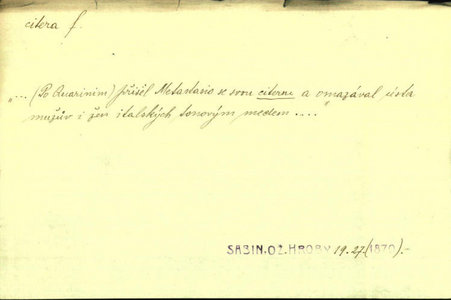 citera f.
"... (Po Guarinim) přišel Metastasio se svou citerou a omazával ústa
mužův i žen italských tonovým medem ...."
SABIN. OŽ. HROBY 19. 27. (1870).-